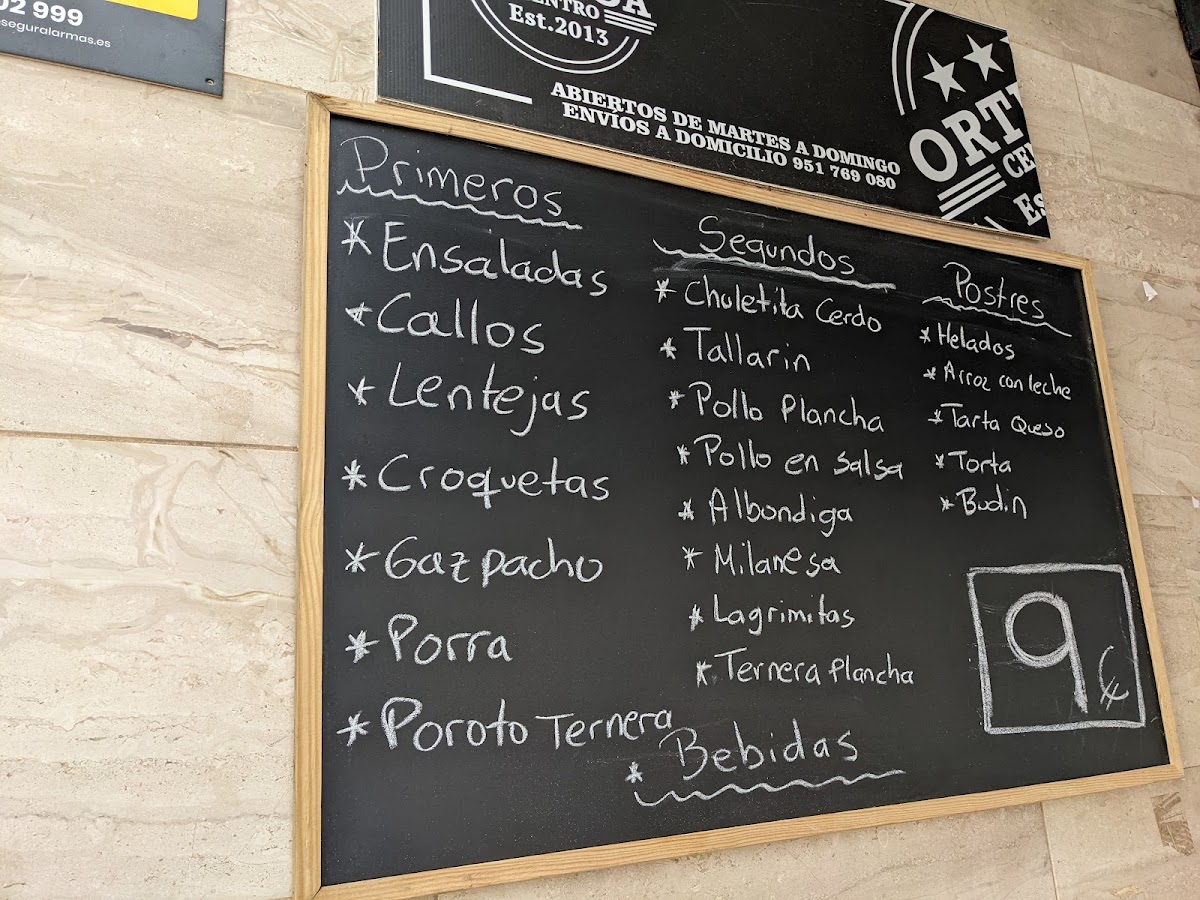 02 999
seguralarmas.es
CENTRO
Est.2013
ABIERTOS DE MARTES A DOMINGO
ENVÍOS A DOMICILIO 951 769 080
Primeros
* Ensaladas
* Callos
* Lentejas
* Croquetas
* Gazpacho
* Porra
* Poroto Ternera
Segundos
* Chuletita Cerdo
* Tallarin
* Pollo Plancha
* Pollo en Salsa
* Albondiga
* Milanesa
* Lagrimitas
* Ternera Plancha
* Bebidas
Postres
* Helados
* Arroz con leche
* Tarta Queso
* Torta
* Budin
9 €